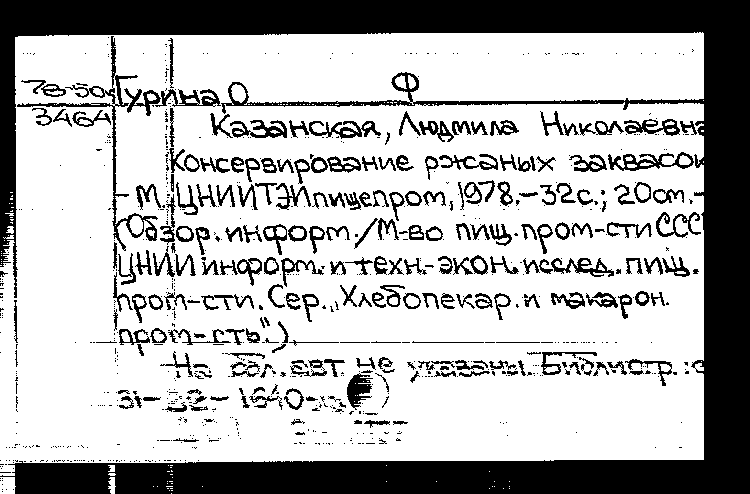 78-50
3464
Гурина, О Ф
Казанская, Людмила Николаевна
Консервирование ржаных заквасок
- М. ЦНИИТЭИпищепром, 1978.-32с.; 20см.-
(Обзор. информ./М-во пищ. пром-сти СССР
ЦНИИ информ. и техн.-экон. исслед. пищ.
пром-сти. Сер. „Хлебопекар. и макарон.
пром-сть").
На обл. авт. не указаны. Библиогр.: с
31-32- 1640